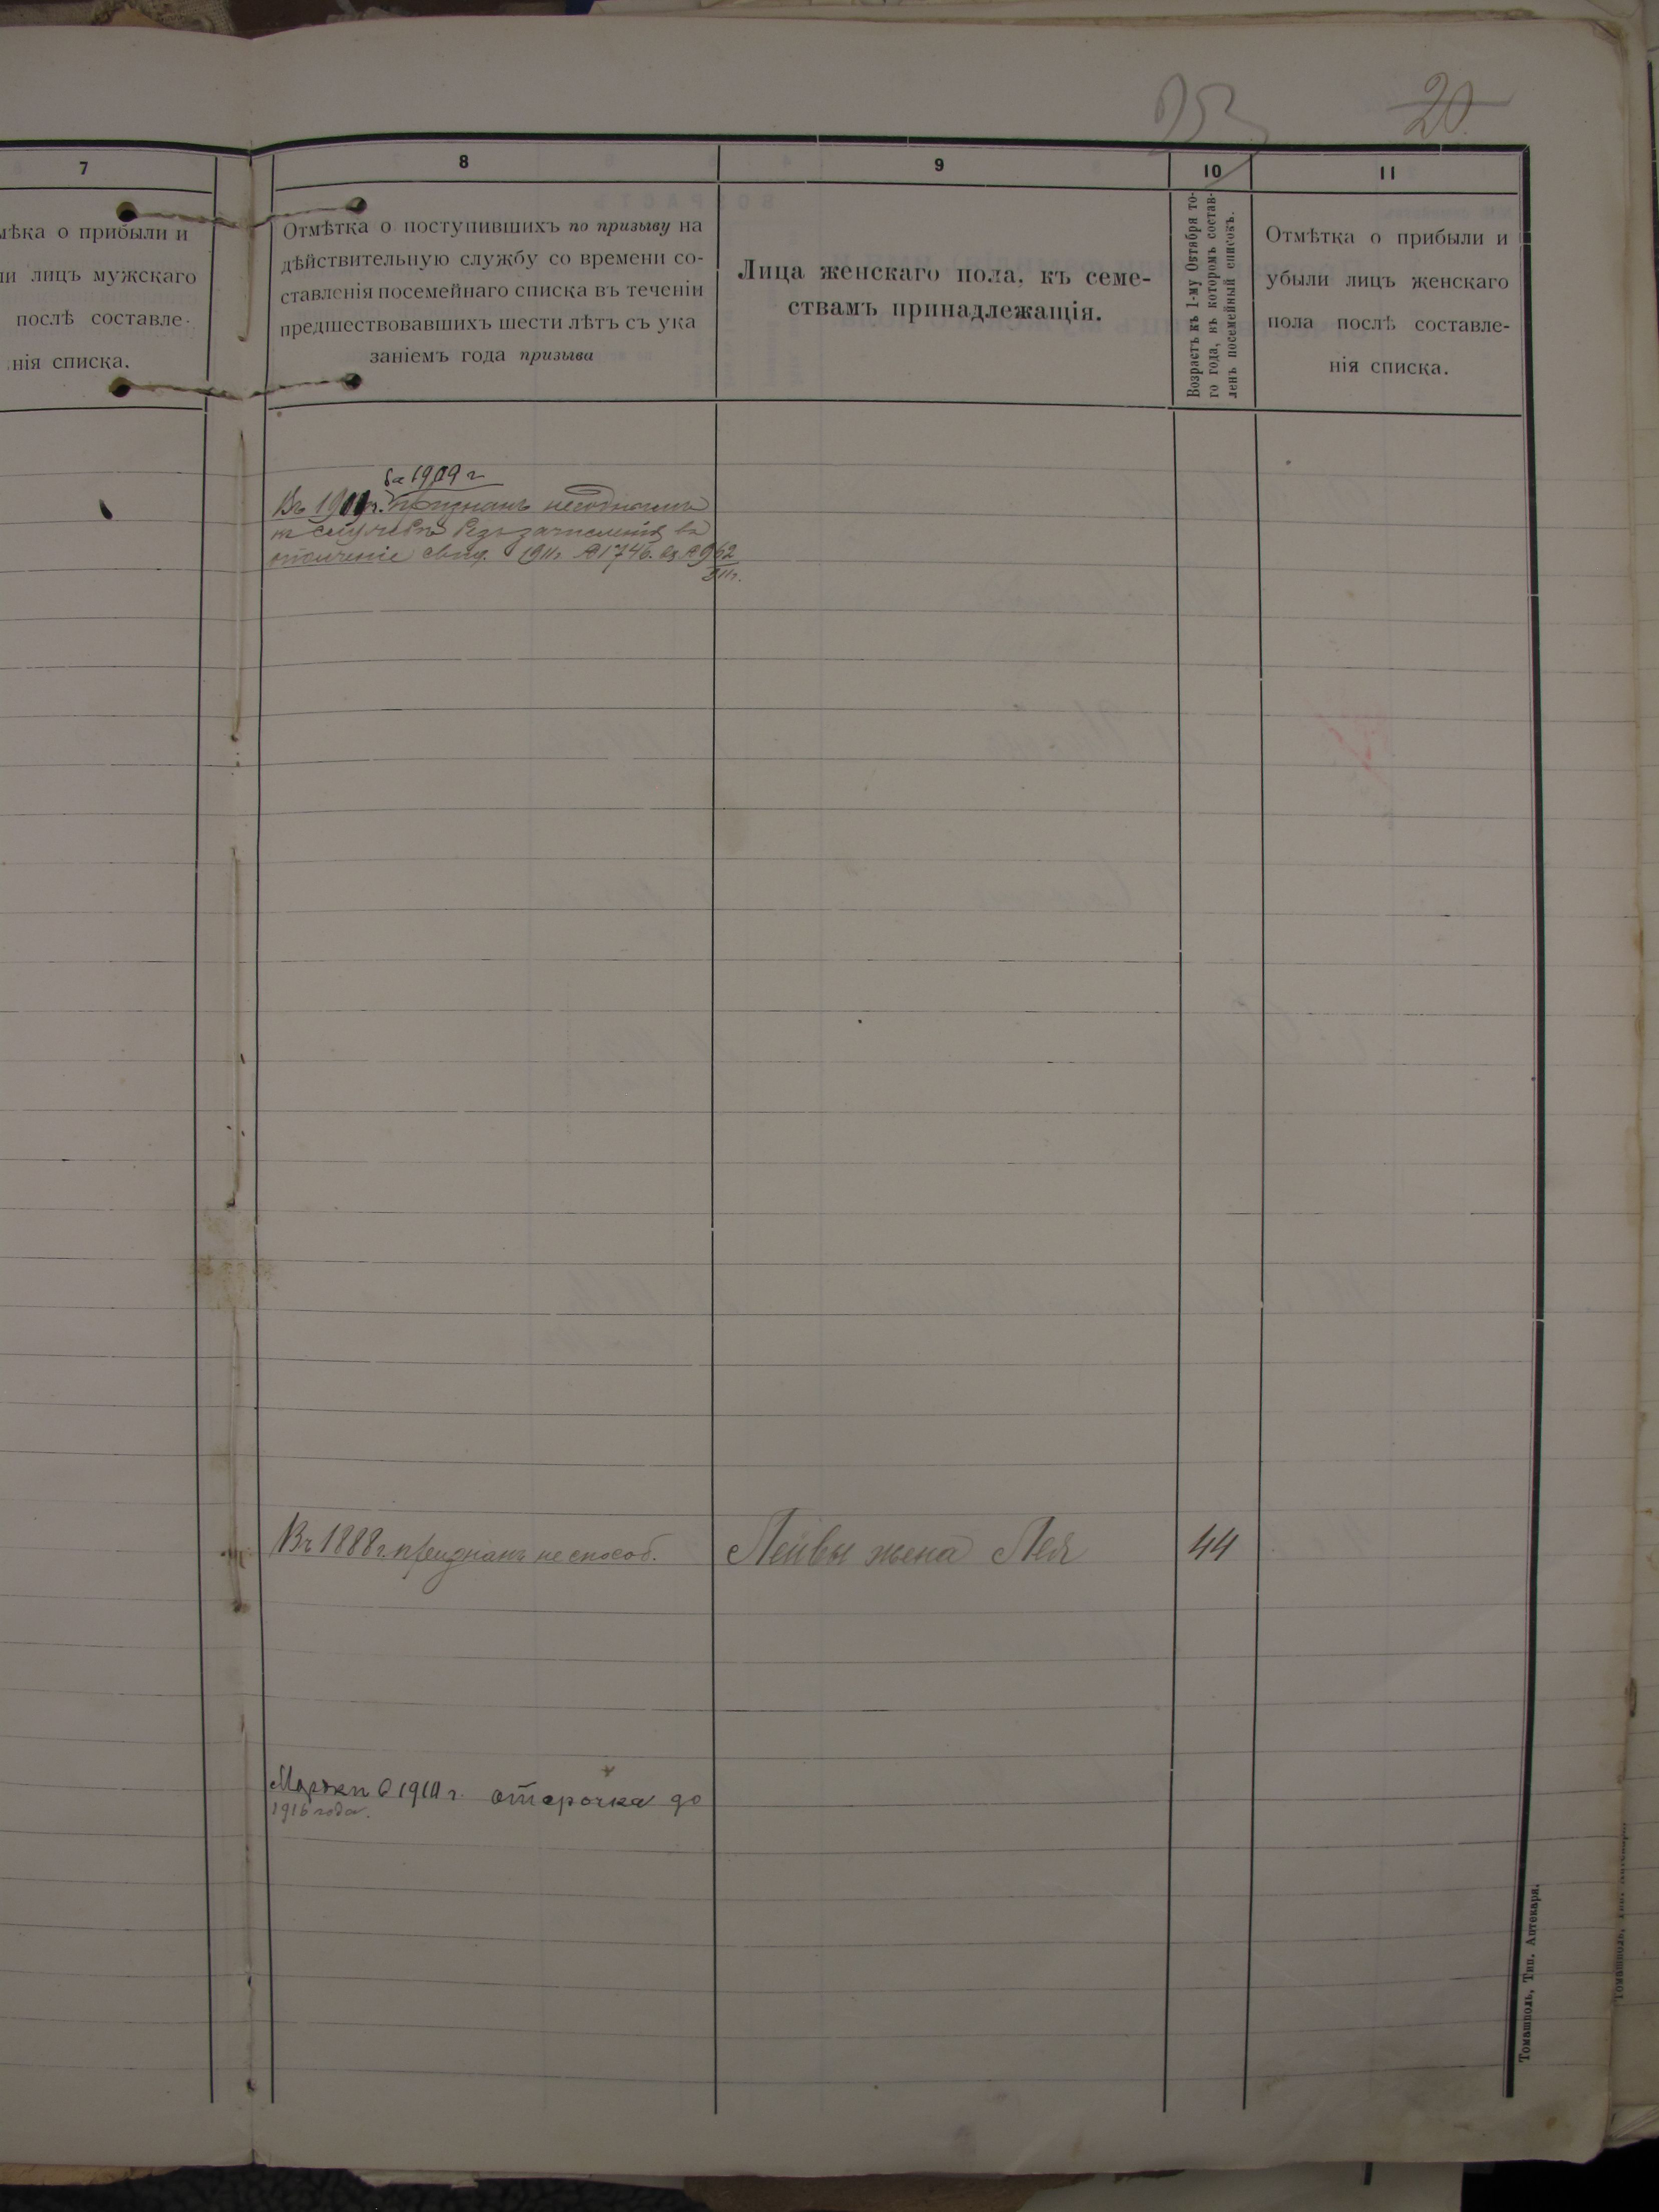 20
7
8
9
10
11
мѣка о прибыли и
ли лицъ мужскаго
послѣ составле-
нія списка.
Отмѣтка о поступившихъ по призыву на
дѣйствительную службу со времени со-
ставленія посемейнаго списка въ теченіи
предшествовавшихъ шести лѣтъ съ ука
заніемъ года призыва
Лица женскаго пола, къ семе-
ствамъ принадлежащія.
Возрастъ къ 1-му Октября то-
го года, въ которомъ состав-
ленъ посемейный списокъ.
Отмѣтка о прибыли и
убыли лицъ женскаго
пола послѣ составле-
нія списка.
1909 г
Въ признанъ негоднымъ
къ службѣ безъ зачисленія въ
ополченіе свид. 1911г. № 1746. № 962
Въ 1888 г. признанъ не способ.
Лейвы жена Лея
44
1910 г. отсрочка до
1916 года.
Томашполь, Тип. Аптекаря.